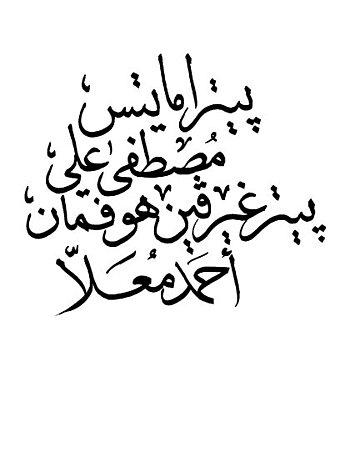 پيتر امايتس
مُصطفى علي
پيتر غيرڤين هوفمان
أحمَد مُعَلاّ